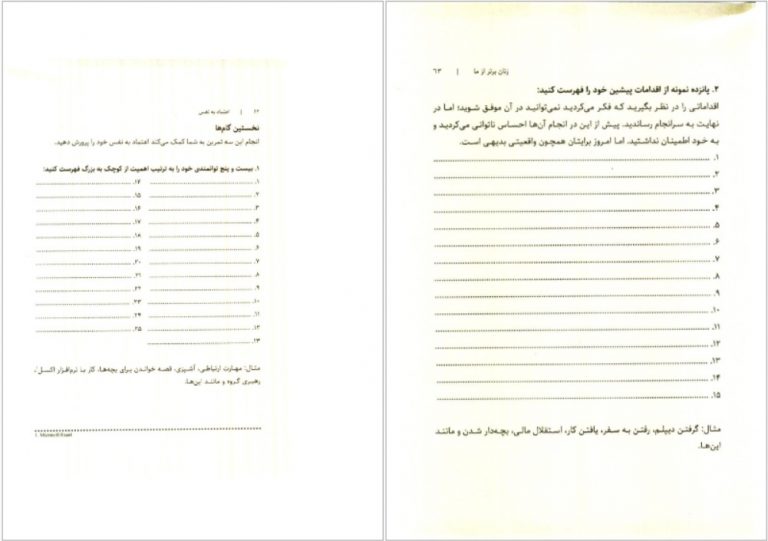 ۶۲ | اعتماد به نفس
نخستین گام‌ها
انجام این سه تمرین به شما کمک می‌کند اعتماد به نفس خود را پرورش دهید.
۱. بیست و پنج توانمندی خود را به ترتیب اهمیت از کوچک به بزرگ فهرست کنید:
۱. ........................ ۱۴. ........................
۲. ........................ ۱۵. ........................
۳. ........................ ۱۶. ........................
۴. ........................ ۱۷. ........................
۵. ........................ ۱۸. ........................
۶. ........................ ۱۹. ........................
۷. ........................ ۲۰. ........................
۸. ........................ ۲۱. ........................
۹. ........................ ۲۲. ........................
۱۰. ........................ ۲۳. ........................
۱۱. ........................ ۲۴. ........................
۱۲. ........................ ۲۵. ........................
۱۳. ........................
مثال: مهارت ارتباطی، آشپزی، قصه خواندن برای بچه‌ها، کار با نرم‌افزار اکسل¹،
رهبری گروه و مانند این‌ها.
1. Microsoft Excel
زنان برتر از ما | ۶۳
۲. پانزده نمونه از اقدامات پیشین خود را فهرست کنید:
اقداماتی را در نظر بگیرید که فکر می‌کردید نمی‌توانید در آن موفق شوید؛ اما در
نهایت به سرانجام رساندید. پیش از این در انجام آن‌ها احساس ناتوانی می‌کردید و
به خود اطمینان نداشتید. اما امروز برایتان همچون واقعیتی بدیهی است.
۱. ........................
۲. ........................
۳. ........................
۴. ........................
۵. ........................
۶. ........................
۷. ........................
۸. ........................
۹. ........................
۱۰. ........................
۱۱. ........................
۱۲. ........................
۱۳. ........................
۱۴. ........................
۱۵. ........................
مثال: گرفتن دیپلم، رفتن به سفر، یافتن کار، استقلال مالی، بچه‌دار شدن و مانند
این‌ها.